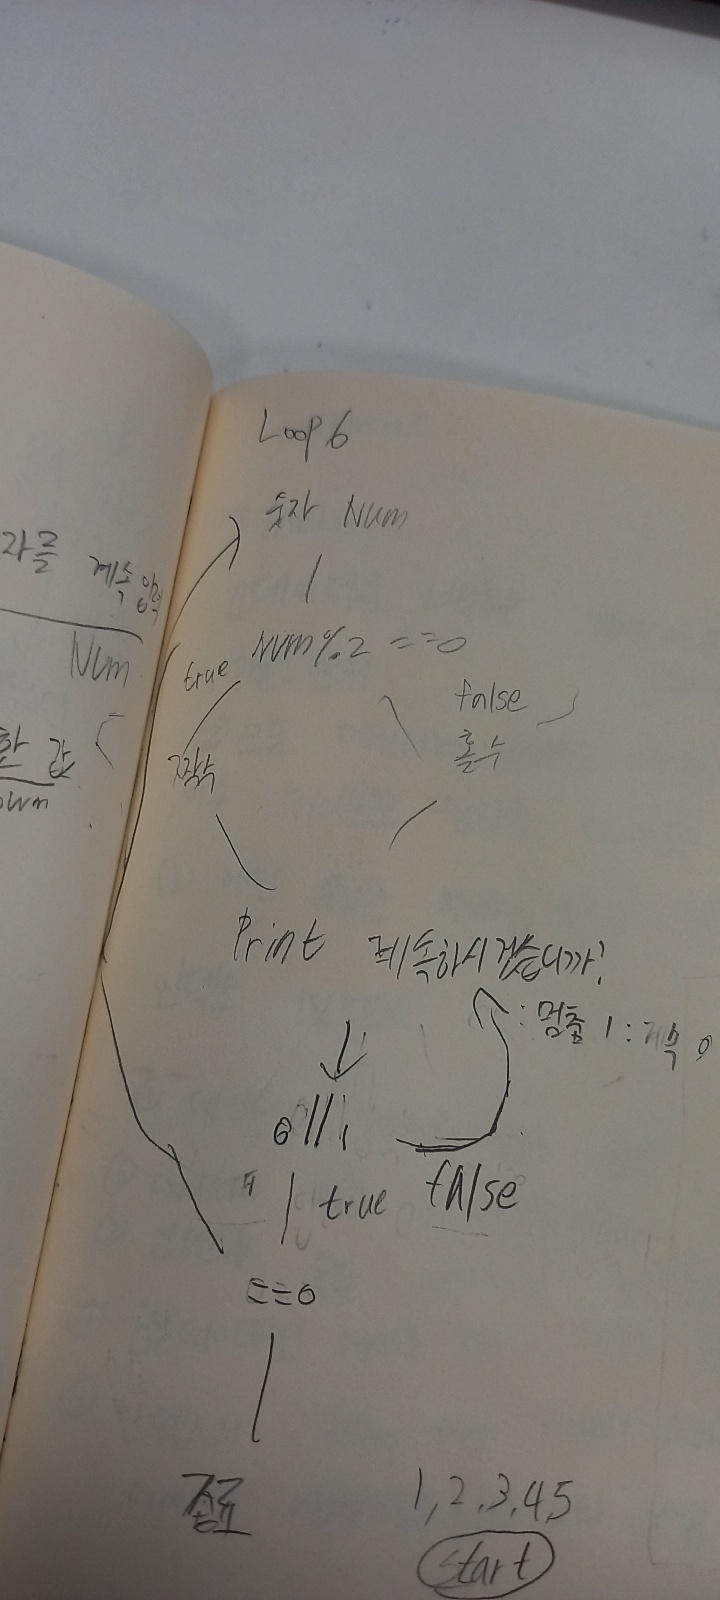 자를 계속 입력
Num
값
own
Loop 6
숫자 Num
Num%2 ==0
true
false
짝수
홀수
Print 계속하시겠습니까?
: 멈춤 1 : 계속 0
0||1
true false
==0
종료
1,2,3,4,5
start